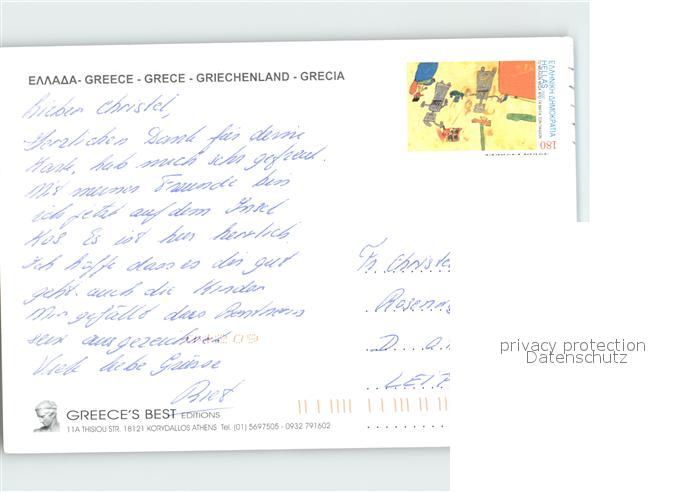 ΕΛΛΑΔΑ- GREECE - GRECE - GRIECHENLAND - GRECIA
ΕΛΛΗΝΙΚΗ ΔΗΜΟΚΡΑΤΙΑ
HELLAS
180
Lieber Christel,
Herzlichen Dank für deine
Karte, hab mich sehr gefreut.
Mit meiner Freunde bin
ich jetzt auf dem Insel
Kos Es ist hier herrlich.
Ich hoffe dass es dir gut
geht auch die Kinder
Mir gefällt das
sein ausgezeichnet
Viele liebe Grüsse
Fr. Christe
D
LEIP
privacy protection
Datenschutz
GREECE'S BEST EDITIONS
11A THISIOU STR. 18121 KORYDALLOS ATHENS Tel. (01) 5697505 - 0932 791602